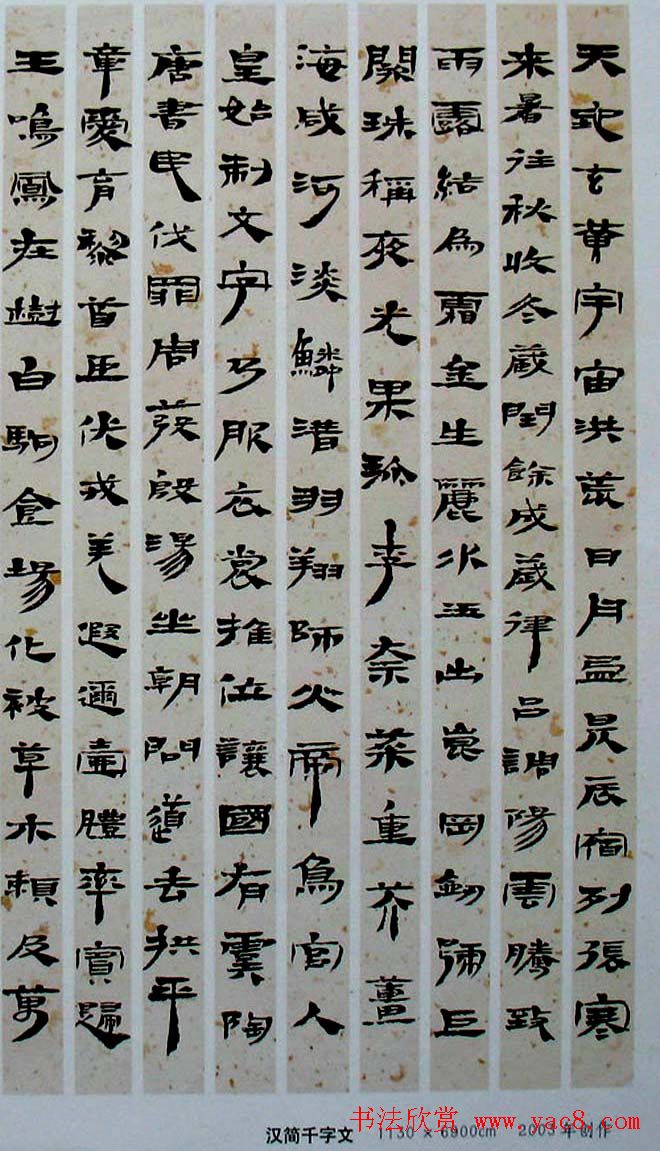 天地玄黄宇宙洪荒日月盈昃辰宿列張寒
来暑往秋收冬蔵閏餘成歲律吕調陽雲騰致
雨露結為霜金生麗水玉出崑岡劍號巨
闕珠稱夜光果珍李柰菜重芥薑
海咸河淡鱗潜羽翔師火帝鳥官人
皇始制文字乃服衣裳推位讓國有虞陶
唐民伐罪周發殷湯坐朝問道垂拱平
章愛育黎首臣伏戎羌遐邇壹體率賓歸
王鳴鳳在樹白駒食場化被草木賴及萬
汉简千字文 1130 × 6900cm 2003年创作
书法欣赏 www.yac8.com